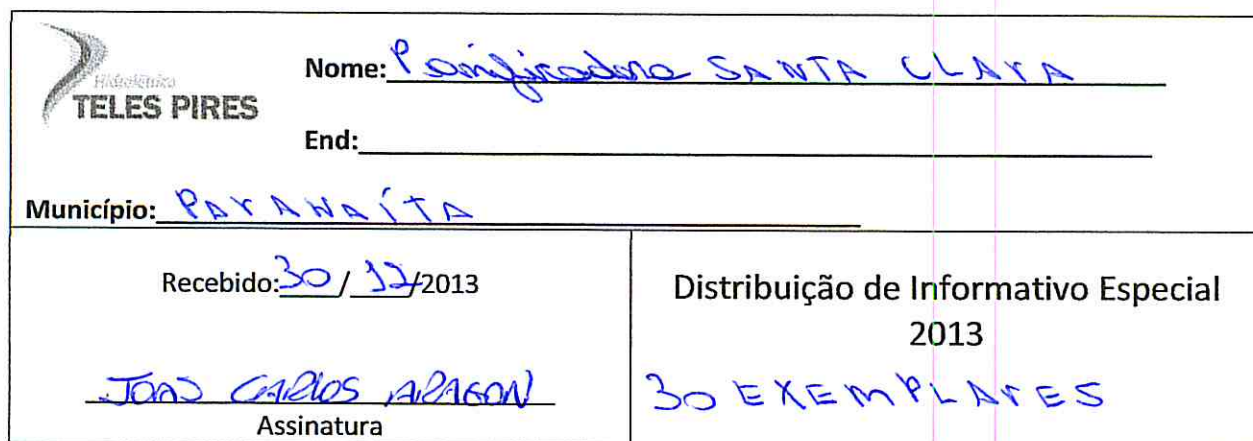 Hidrelétrica
TELES PIRES
Nome: Panificadora SANTA CLARA
End:
Município: PARANAÍTA
Recebido: 30 / 12/2013
JOAO CARLOS ARAGON
Assinatura
Distribuição de Informativo Especial
2013
30 EXEMPLARES